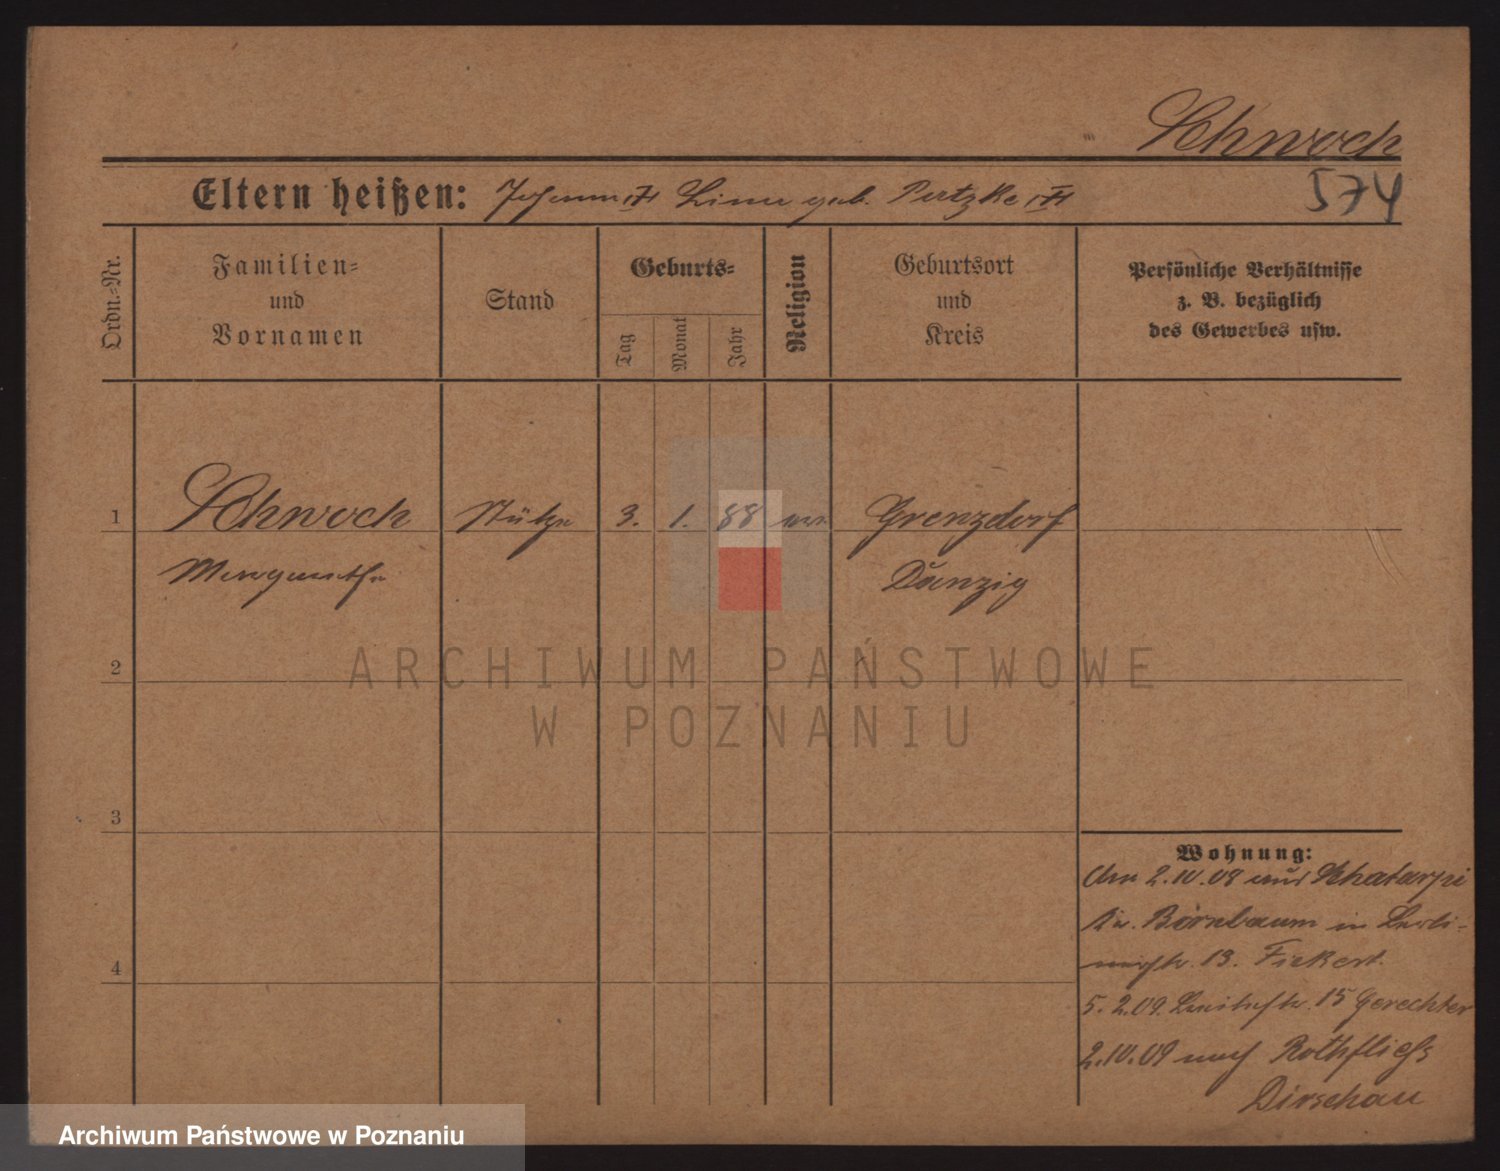 Schwoch
574
Eltern heißen: Johann geb. Putzke
Ordn.-Nr.
Familien-
und
Vornamen
Stand
Geburts-
Tag
Monat
Jahr
Religion
Geburtsort
und
Kreis
Persönliche Verhältnisse
z. B. bezüglich
des Gewerbes usw.
1 Schwoch Stütze 3. 1. 88 Grenzdorf
Margarethe Danzig
2
3
4
Wohnung:
Am 2.10.08 aus
in
13. Fiekert.
5.2.09. 15 Gerechter
2.10.09 nach Rothfließ
Dirschau
ARCHIWUM PAŃSTWOWE
W POZNANIU
Archiwum Państwowe w Poznaniu